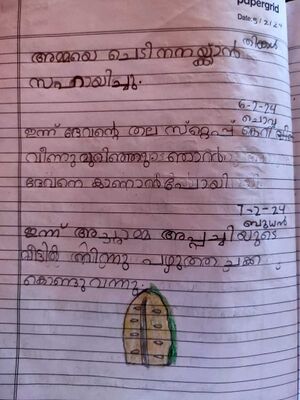 papergrid
Date: 5/2/24
തിങ്കൾ
അമ്മയെ ചെടി നനയ്ക്കാൻ
സഹായിച്ചു.
6-2-24
ചൊവ്വ
ഇന്ന് ദേവന്റെ തല സ്റ്റെപ്പ്
വീണു മുറിഞ്ഞു ഞാൻ
ദേവനെ കാണാൻ പോയി
7-2-24
ബുധൻ
ഇന്ന് അച്ചമ്മ അപ്പച്ചിയുടെ
വീട്ടിൽ നിന്നു പഴുത്ത ചക്ക
കൊണ്ടുവന്നു.